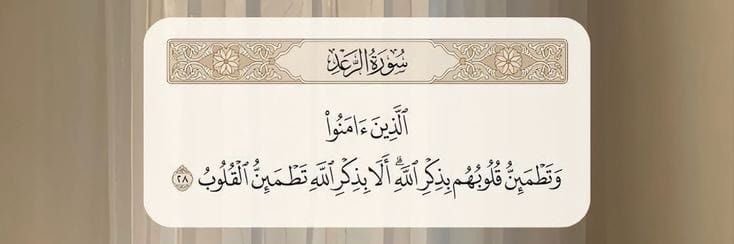 سُورَةُ الرَّعْدِ
ٱلَّذِينَ ءَامَنُوا۟
وَتَطْمَئِنُّ قُلُوبُهُم بِذِكْرِ ٱللَّهِ ۗ أَلَا بِذِكْرِ ٱللَّهِ تَطْمَئِنُّ ٱلْقُلُوبُ ٢٨